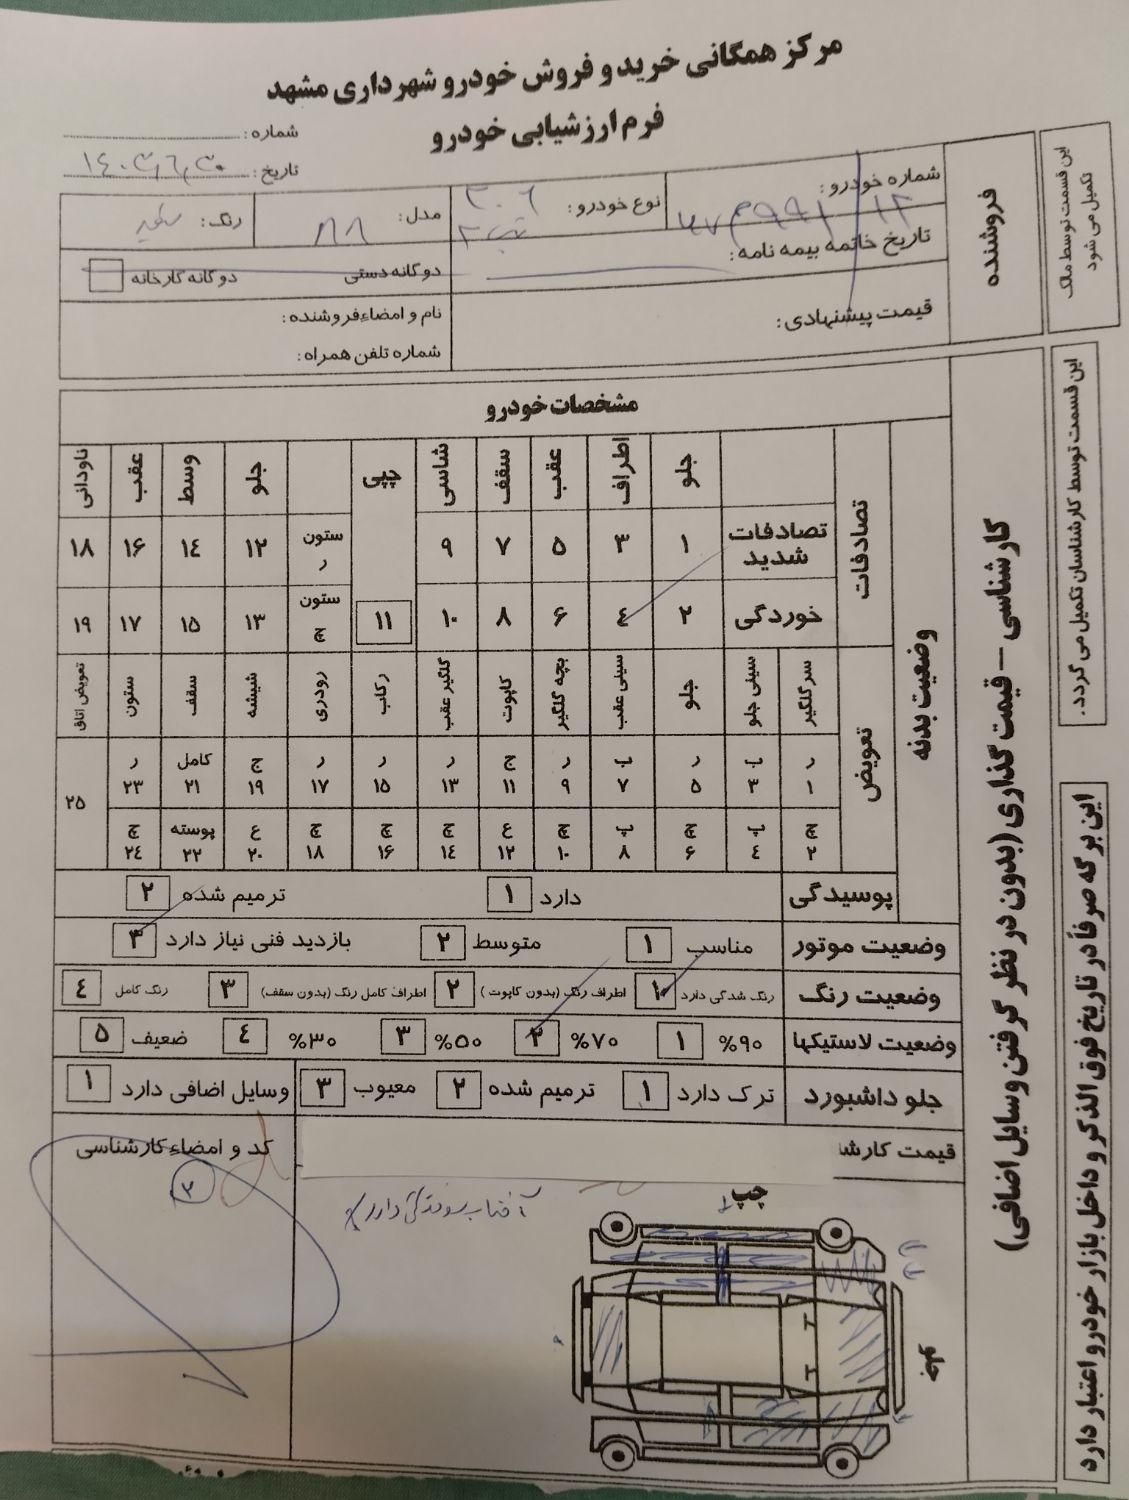 مرکز همگانی خرید و فروش خودرو شهرداری مشهد
فرم ارزشیابی خودرو
شماره:
تاریخ:
این قسمت توسط مالک تکمیل می شود
فروشنده
شماره خودرو:
نوع خودرو: ۲۰۶ تیپ ۲
مدل: ۸۸
رنگ: سفید
تاریخ خاتمه بیمه نامه:
دوگانه دستی
دوگانه کارخانه
قیمت پیشنهادی:
نام و امضاء فروشنده:
شماره تلفن همراه:
این قسمت توسط کارشناسان تکمیل می گردد.
این برگه صرفاً در تاریخ فوق الذکر و داخل بازار خودرو اعتبار دارد
کارشناسی – قیمت گذاری (بدون در نظر گرفتن وسایل اضافی)
مشخصات خودرو
وضعیت بدنه
تصادفات
جلو اطراف عقب سقف شاسی چپی جلو وسط عقب ناودانی
تصادفات شدید ۱ ۳ ۵ ۷ ۹ ستون ر ۱۲ ۱۴ ۱۶ ۱۸
خوردگی ۲ ۴ ۶ ۸ ۱۰ ۱۱ ستون چ ۱۳ ۱۵ ۱۷ ۱۹
تعویض
سر گلگیر سینی جلو جلو سینی عقب بچه گلگیر کاپوت گلگیر عقب رکاب رودری شیشه سقف ستون تعویض اتاق
ر ۱ ر ۵ ر ۹ ج ۱۱ ر ۱۳ ر ۱۵ ر ۱۷ ج ۱۹ کامل ۲۱ ر ۲۳ ۲۵
چ ۲ چ ۶ چ ۱۰ ع ۱۲ چ ۱۴ چ ۱۶ چ ۱۸ ع ۲۰ پوسته ۲۲ چ ۲۴
پوسیدگی دارد ۱ ترمیم شده ۲
وضعیت موتور مناسب ۱ متوسط ۲ بازدید فنی نیاز دارد ۳
وضعیت رنگ رنگ شدگی دارد ۱ اطراف رنگ (بدون کاپوت) ۲ اطراف کامل رنگ (بدون سقف) ۳ رنگ کامل ۴
وضعیت لاستیکها ۹۰% ۱ ۷۰% ۲ ۵۰% ۳ ۳۰% ۴ ضعیف ۵
جلو داشبورد ترک دارد ۱ ترمیم شده ۲ معیوب ۳ وسایل اضافی دارد ۱
قیمت کارشا
کد و امضاء کارشناسی
آفتاب سوختگی دارد
چپ